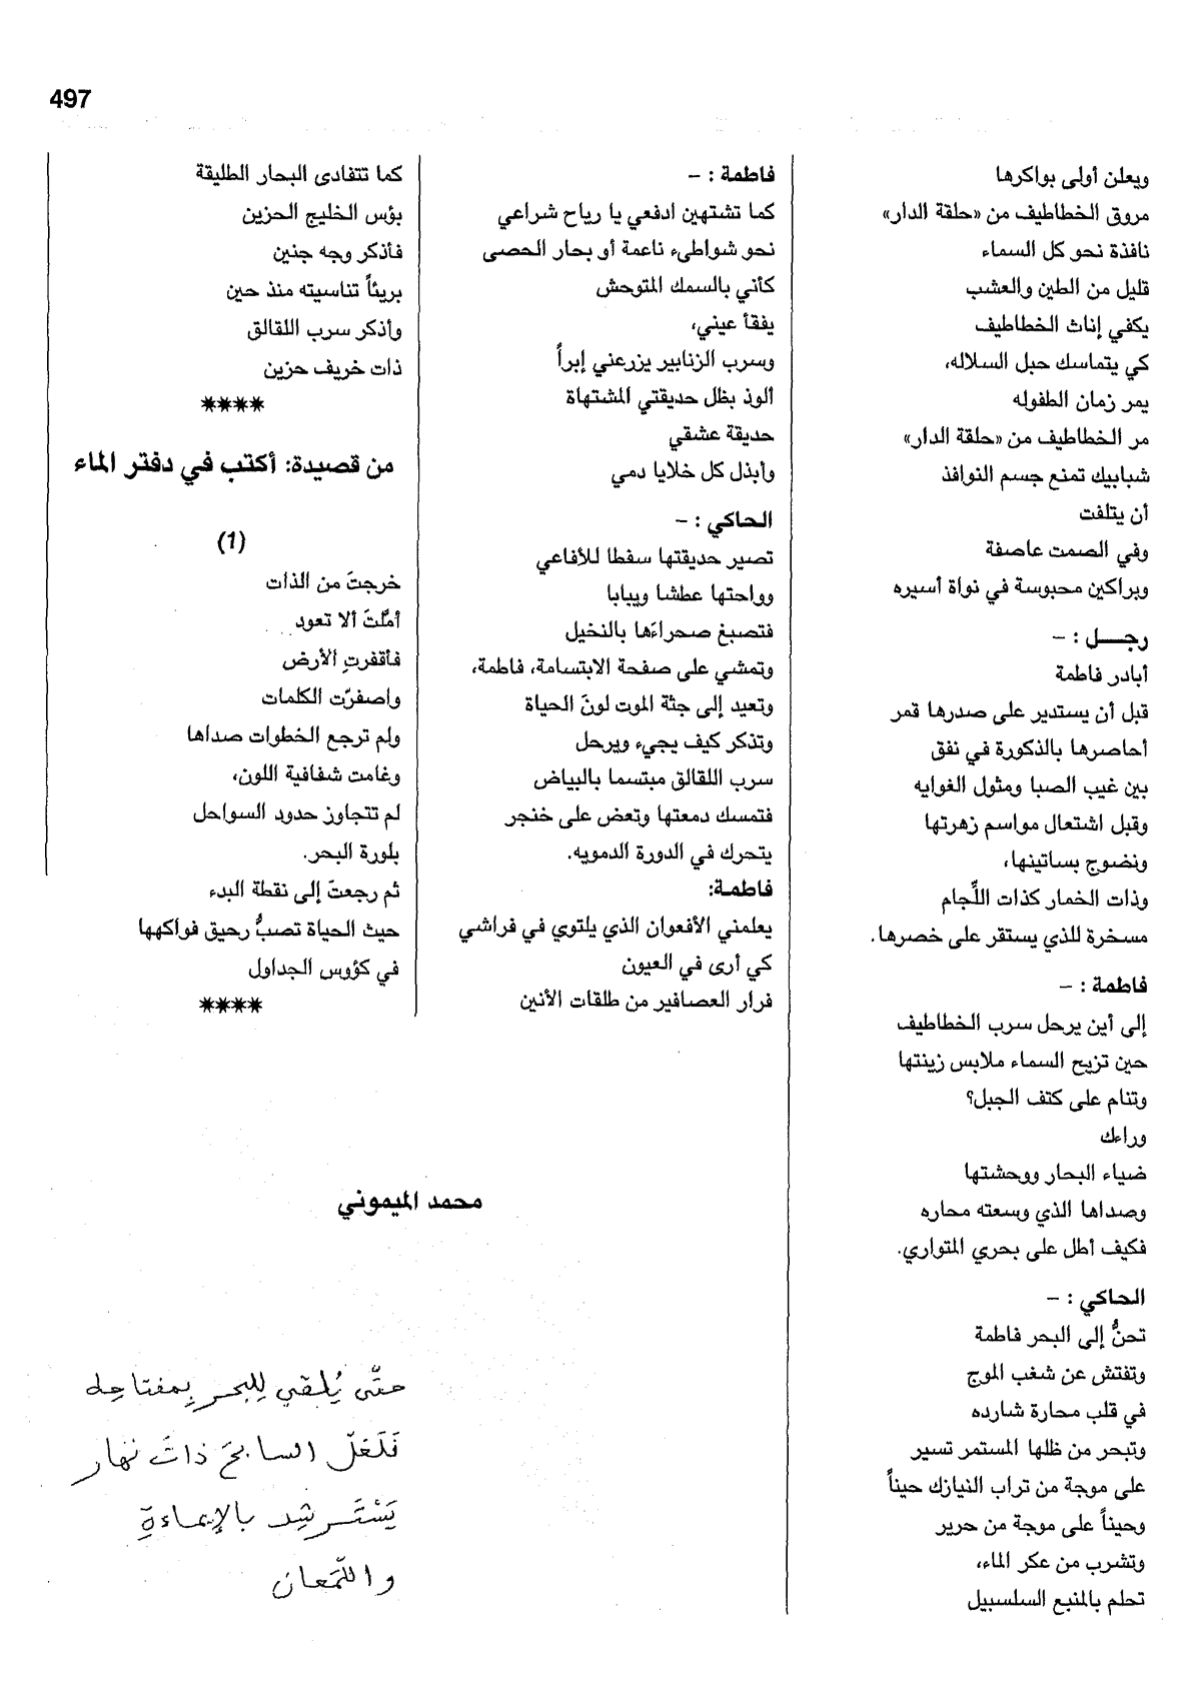 497
ويعلن أولى بواكرها
مروق الخطاطيف من «حلقة الدار»
نافذة نحو كل السماء
قليل من الطين والعشب
يكفي إناث الخطاطيف
كي يتماسك حبل السلاله،
يمر زمان الطفوله
مر الخطاطيف من «حلقة الدار»
شبابيك تمنع جسم النوافذ
أن يتلفت
وفي الصمت عاصفة
وبراكين محبوسة في نواة أسيره
رجــــل : –
أبادر فاطمة
قبل أن يستدير على صدرها قمر
أحاصرها بالذكورة في نفق
بين غيب الصبا ومثول الغوايه
وقبل اشتعال مواسم زهرتها
ونضوج بساتينها،
وذات الخمار كذات اللِّجام
مسخرة للذي يستقر على خصرها.
فاطمة : –
إلى أين يرحل سرب الخطاطيف
حين تزيح السماء ملابس زينتها
وتنام على كتف الجبل؟
وراءك
ضياء البحار ووحشتها
وصداها الذي وسعته محاره
فكيف أطل على بحري المتواري.
الحاكي : –
تحنُّ إلى البحر فاطمة
وتفتش عن شغب الموج
في قلب محارة شارده
وتبحر من ظلها المستمر تسير
على موجة من تراب النيازك حيناً
وحيناً على موجة من حرير
وتشرب من عكر الماء،
تحلم بالمنبع السلسبيل
فاطمة : –
كما تشتهين ادفعي يا رياح شراعي
نحو شواطىء ناعمة أو بحار الحصى
كأني بالسمك المتوحش
يفقأ عيني،
وسرب الزنابير يزرعني إبراً
ألوذ بظل حديقتي المشتهاة
حديقة عشقي
وأبذل كل خلايا دمي
الحاكي : –
تصير حديقتها سفطا للأفاعي
وواحتها عطشا ويبابا
فتصبغ صحراءَها بالنخيل
وتمشي على صفحة الابتسامة، فاطمة،
وتعيد إلى جثة الموت لونَ الحياة
وتذكر كيف يجيء ويرحل
سرب اللقالق مبتسما بالبياض
فتمسك دمعتها وتعض على خنجر
يتحرك في الدورة الدمويه.
فاطمـة:
يعلمني الأفعوان الذي يلتوي في فراشي
كي أرى في العيون
فرار العصافير من طلقات الأنين
كما تتفادى البحار الطليقة
بؤس الخليج الحزين
فأذكر وجه جنين
بريئاً تناسيته منذ حين
وأذكر سرب اللقالق
ذات خريف حزين
****
من قصيدة: أكتب في دفتر الماء
(1)
خرجتَ من الذات
أمَّلتَ ألا تعود
فأقفرتِ الأرض
واصفرّت الكلمات
ولم ترجع الخطوات صداها
وغامت شفافية اللون،
لم تتجاوز حدود السواحل
بلورة البحر.
ثم رجعتَ إلى نقطة البدء
حيث الحياة تصبُّ رحيق فواكهها
في كؤوس الجداول
****
محمد الميموني
حتّى يُلقي لِلبحر بِمفتاحِه
فَلَعَلّ السابحَ ذاتَ نهار
يَسْتَرشِد بالإيماءةِ
واللّمعان